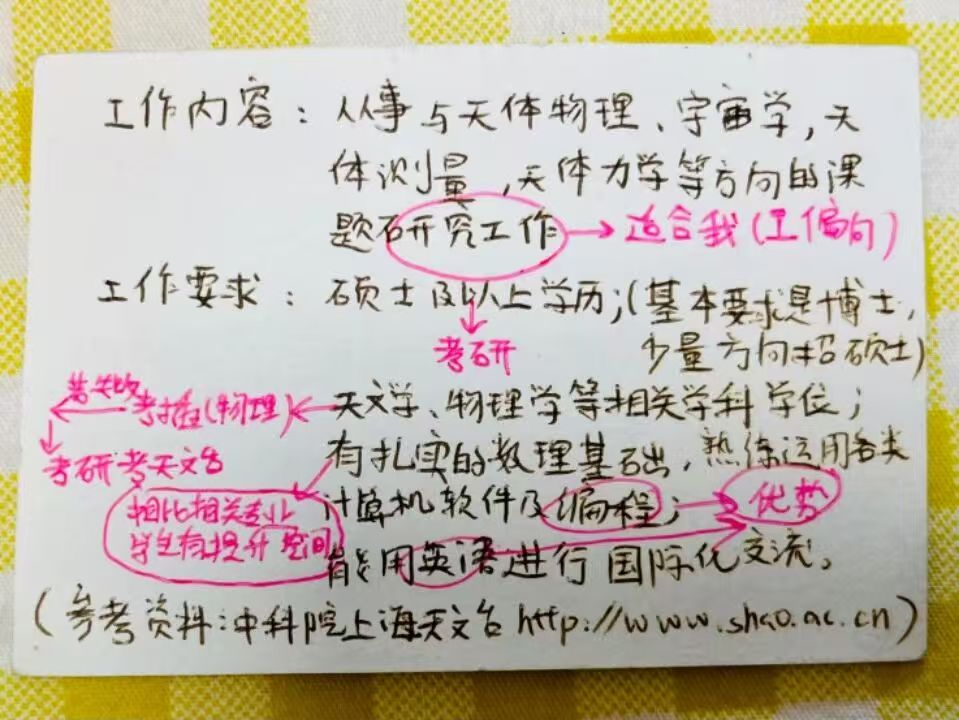 工作内容：从事与天体物理、宇宙学，天
体测量，天体力学等方向的课
题研究工作 → 适合我(工偏向)
工作要求：硕士及以上学历；(基本要求是博士，
考研
少量方向招硕士)
若失败
考插(物理) 天文学、物理学等相关学科学位；
考研考天文台
有扎实的数理基础，熟练运用各类
相比相关专业
学生有提升空间
计算机软件及编程； 优势
能用英语进行国际化交流。
(参考资料：中科院上海天文台 http://www.shao.ac.cn)